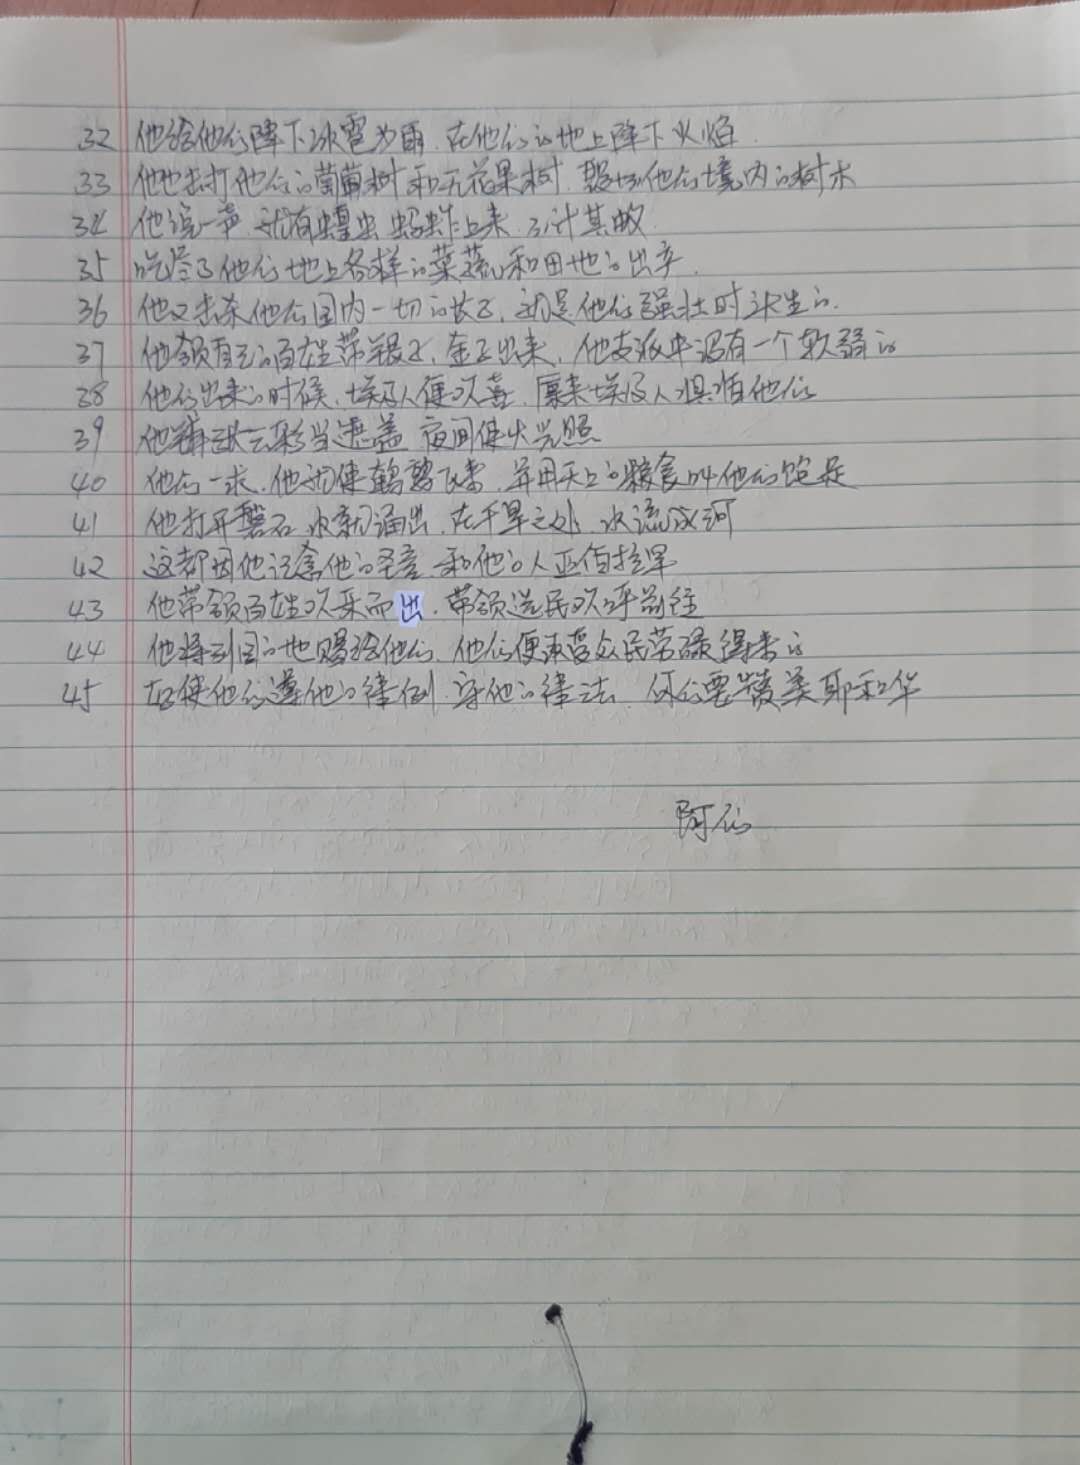 32 他给他们降下冰雹为雨.在他们的地上降下火焰.
33 他也击打他们的葡萄树和无花果树.毁坏他们境内的树木
34 他说一声.就有蝗虫蚂蚱上来.不计其数
35 吃尽了他们地上各样的菜蔬和田地的出产.
36 他又击杀他们国内一切的长子,就是他们强壮时头生的.
37 他领自己的百姓带银子,金子出来,他支派中没有一个软弱的
38 他们出来的时候,埃及人便欢喜.原来埃及人惧怕他们
39 他铺张云彩当遮盖 夜间使火光照
40 他们一求.他就使鹌鹑飞来,并用天上的粮食叫他们饱足
41 他打开磐石,水就涌出.在干旱之处,水流成河
42 这都因他记念他的圣言.和他的人亚伯拉罕
43 他带领百姓欢乐而出.带领选民欢呼前往
44 他将列国的地赐给他们,他们便承受众民劳碌得来的
45 好使他们遵他的律例.守他的律法.你们要赞美耶和华
阿们